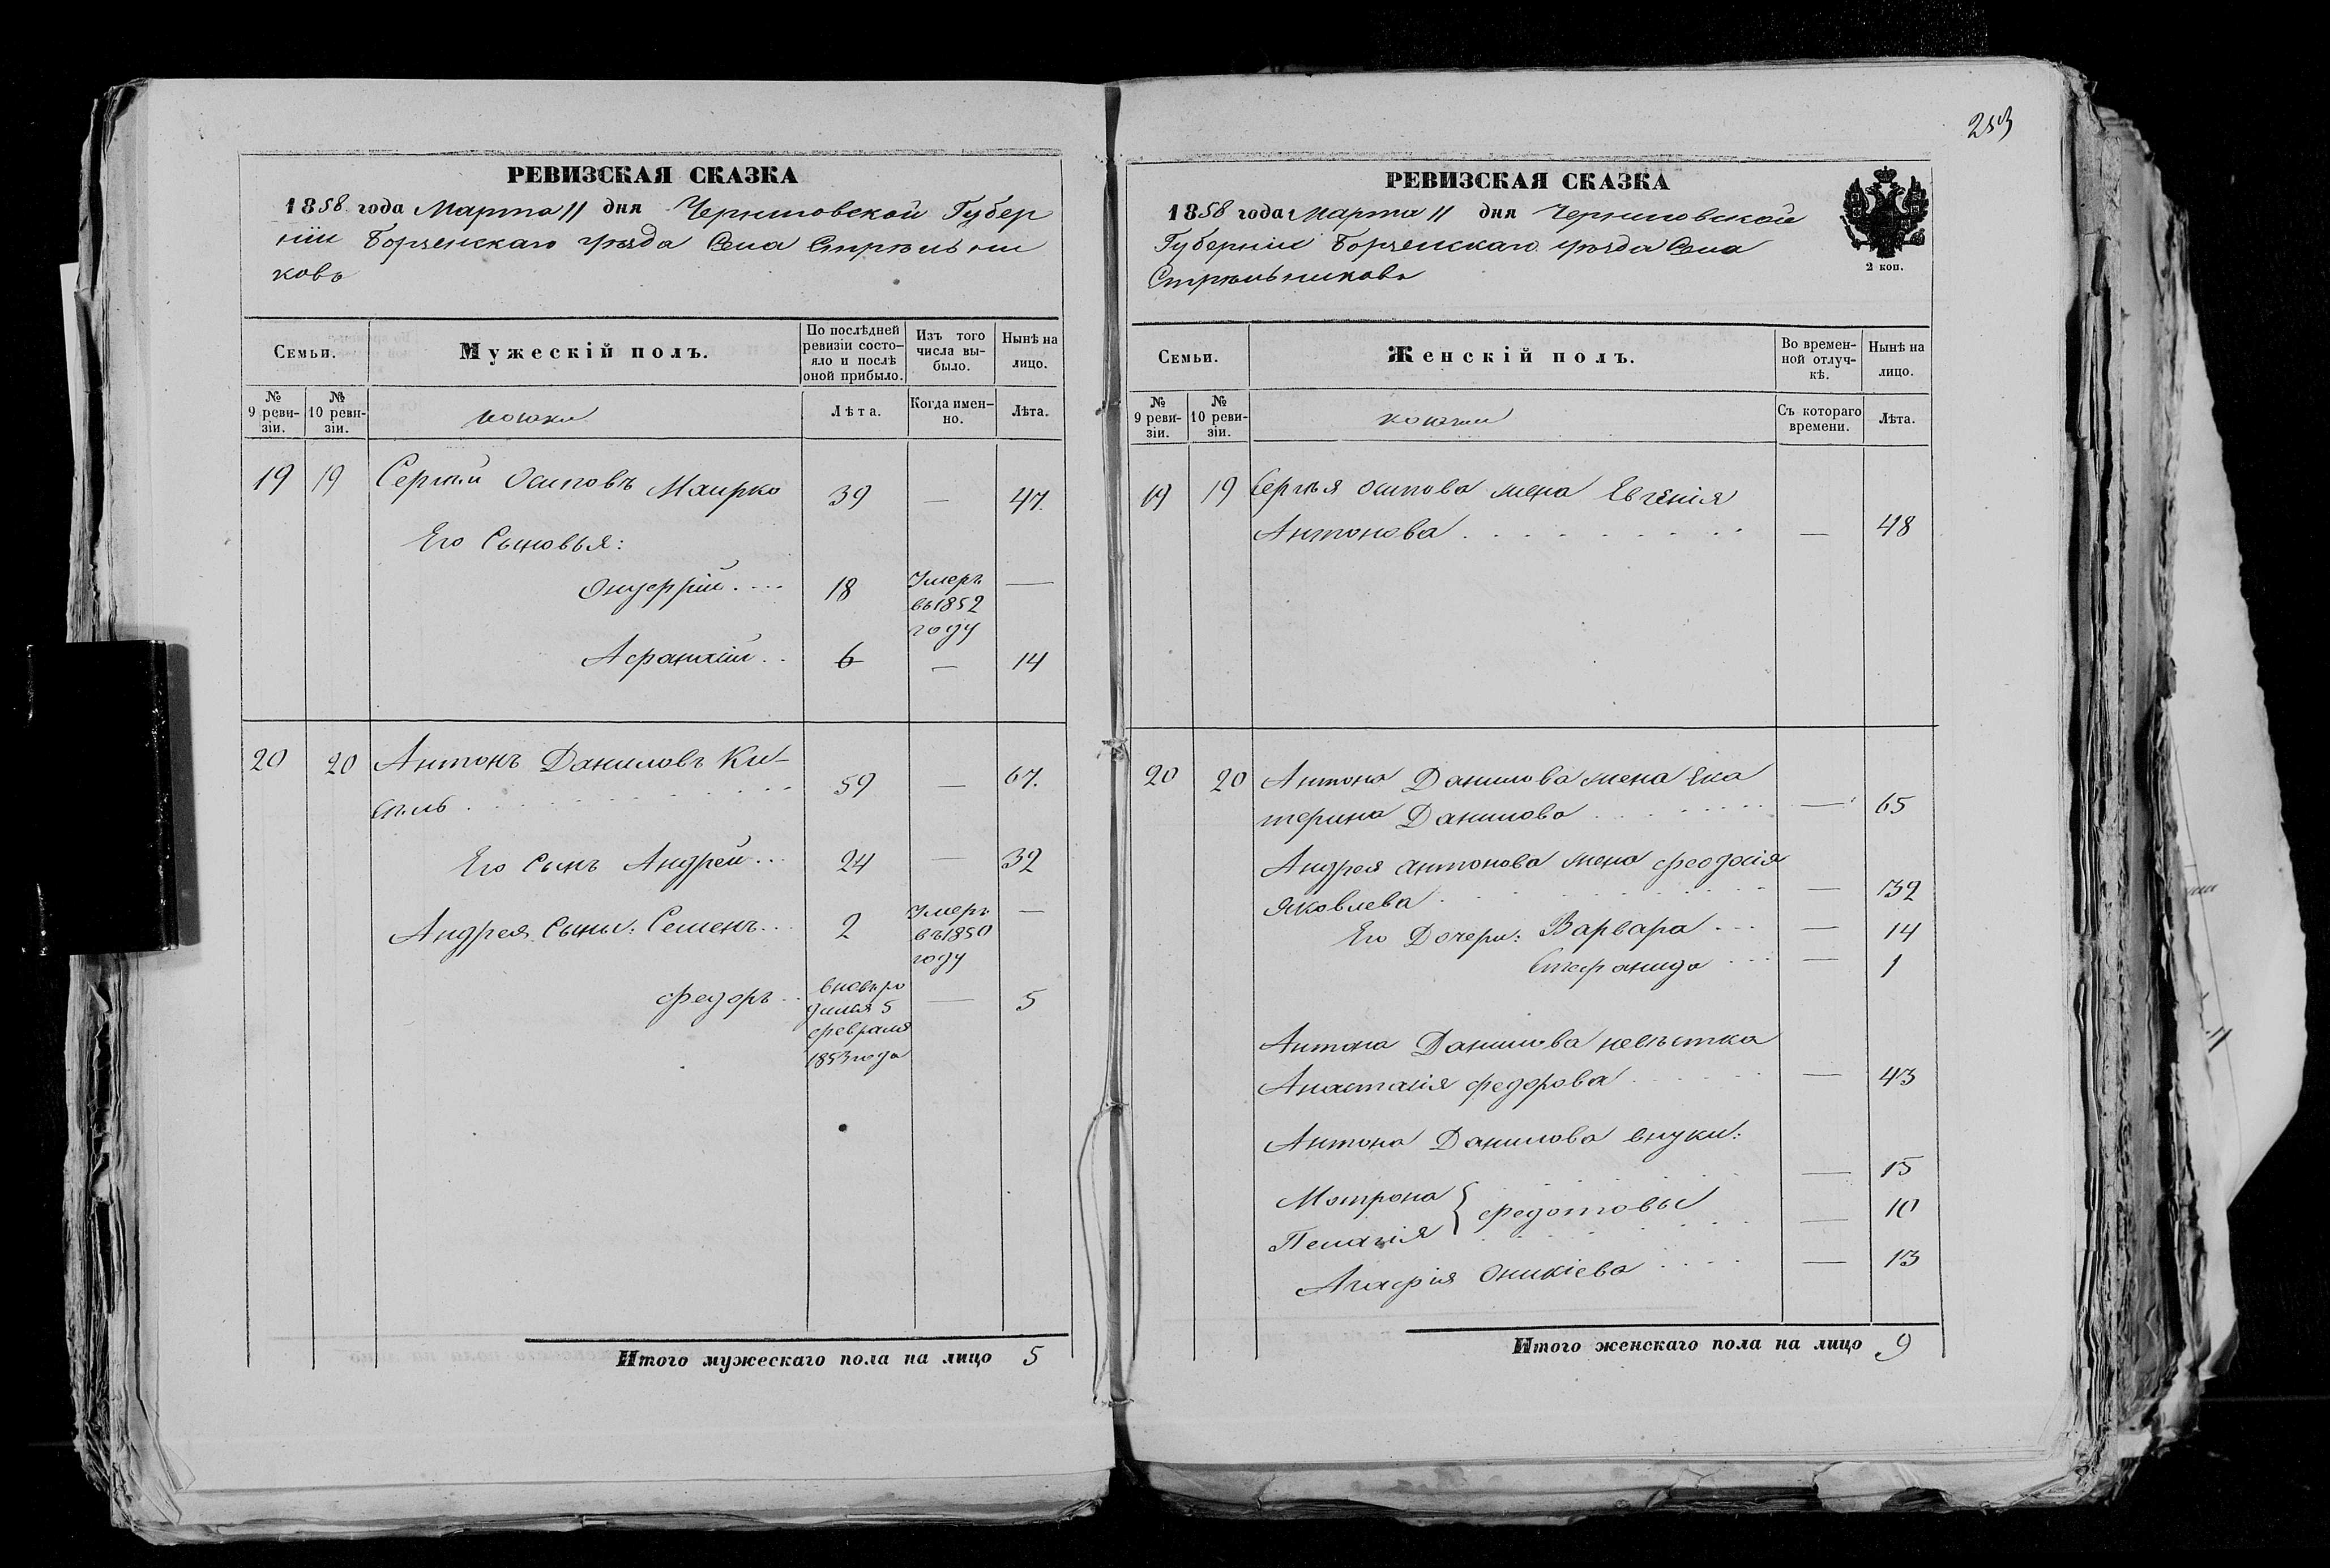 РЕВИЗСКАЯ СКАЗКА
1858 года Марта 11 дня Черниговской Губер
ніи Борзенскаго уѣзда Села Стрѣльни
ковъ
Семьи.
Мужескій полъ.
По послѣдней ревизіи состо-
яло и послѣ оной прибыло.
Изъ того числа вы-
было.
Нынѣ на лицо.
№ 9 реви-
зіи.
№ 10 реви-
зіи.
Лѣта.
Когда имен-
но.
Лѣта.
19 19 Сергѣй Осиповъ 39 — 47.
Его Сыновья:
Онуфрій 18 Умеръ —
въ 1852
году
6 — 14
20 20 Антонъ Даниловъ Ки-
59 — 67.
Его Сынъ Андрей 24 — 32
Андрея Сыны: Семенъ 2 Умеръ —
въ 1850
году
Федоръ вновь ро — 5
дился 5
февраля
1853 года
Итого мужескаго пола на лицо 5
253
РЕВИЗСКАЯ СКАЗКА
1858 года Марта 11 дня Черниговской
Губерніи Борзенскаго уѣзда Села
Стрѣльниковъ
2 коп.
Семьи.
Женскій полъ.
Во времен-
ной отлуч-
кѣ.
Нынѣ на лицо.
№ 9 реви-
зіи.
№ 10 реви-
зіи.
Съ котораго времени.
Лѣта.
19 19 Сергѣя Осипова жена Евгенія
Антонова — 48
20 20 Антона Данилова жена Ека
терина Данилова — 65
Андрея Антонова жена Феодосія
Яковлева — 32
Его Дочери: Варвара — 14
Стефанида — 1
Антона Данилова невѣстка
Анастасія Федорова — 43
Антона Данилова внуки:
Мотрона { Федотовы — 15
Пелагія — 10
Агафія Оникіева — 13
Итого женскаго пола на лицо 9